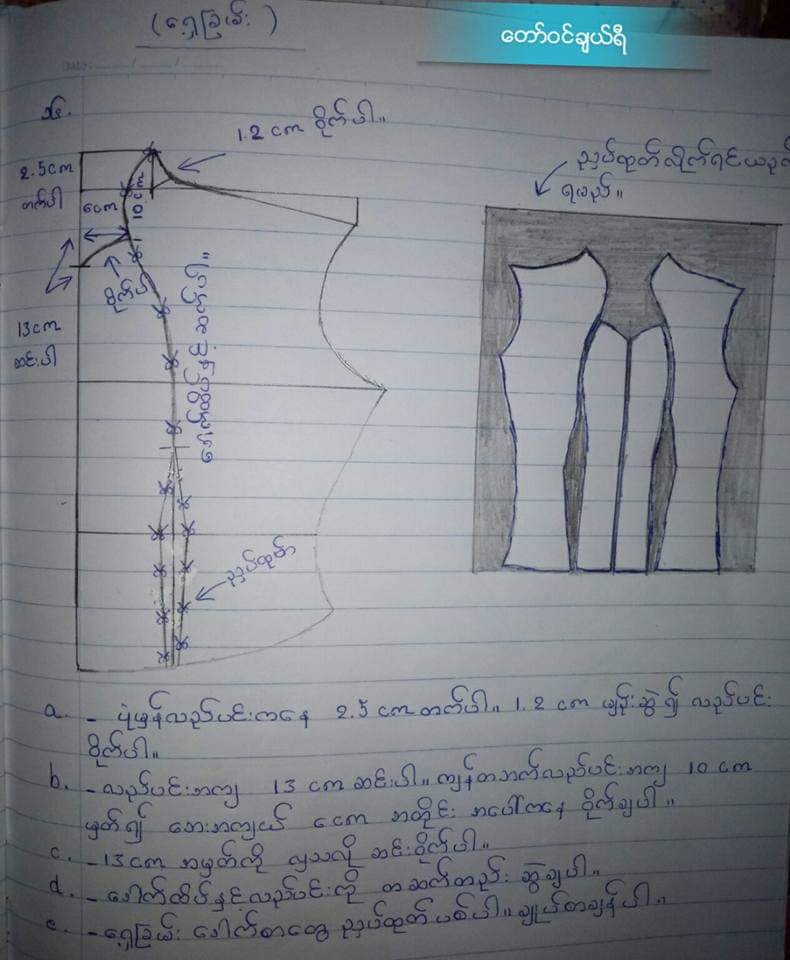 (ရှေ့ခြမ်း)
တော်ဝင်ချယ်ရီ
Date:
1.2 cm ဝိုက်ပါ။
2.5cm
တက်ပါ
6cm
10 cm
ဝိုက်ပါ
13 cm
ဆင်းပါ
ညှပ်ထုတ်
ညှပ်ထုတ်လိုက်ရင်
ရမည်။
a. - ပုံမှန်လည်ပင်းကနေ 2.5 cm တက်ပါ။ 1.2 cm မျဉ်းဆွဲ၍ လည်ပင်း
ဝိုက်ပါ။
b. - လည်ပင်းအကျ 13 cm ဆင်းပါ။ ကျန်တဘက်လည်ပင်းအကျ 10 cm
မှတ်၍ ဘေးအကျယ် 6cm အတိုင်း အပေါ်ကနေ ဝိုက်ချပါ။
c. - 13 cm အမှတ်ကို လှသလို ဆင်းဝိုက်ပါ။
d. - ပေါက်ထိပ်နှင့်လည်ပင်းကို တဆက်တည်း ဆွဲချပါ။
e. - ရှေ့ခြမ်း ပေါက်စာတွေ ညှပ်ထုတ်ပစ်ပါ။ ချုပ်စာချန်ပါ။